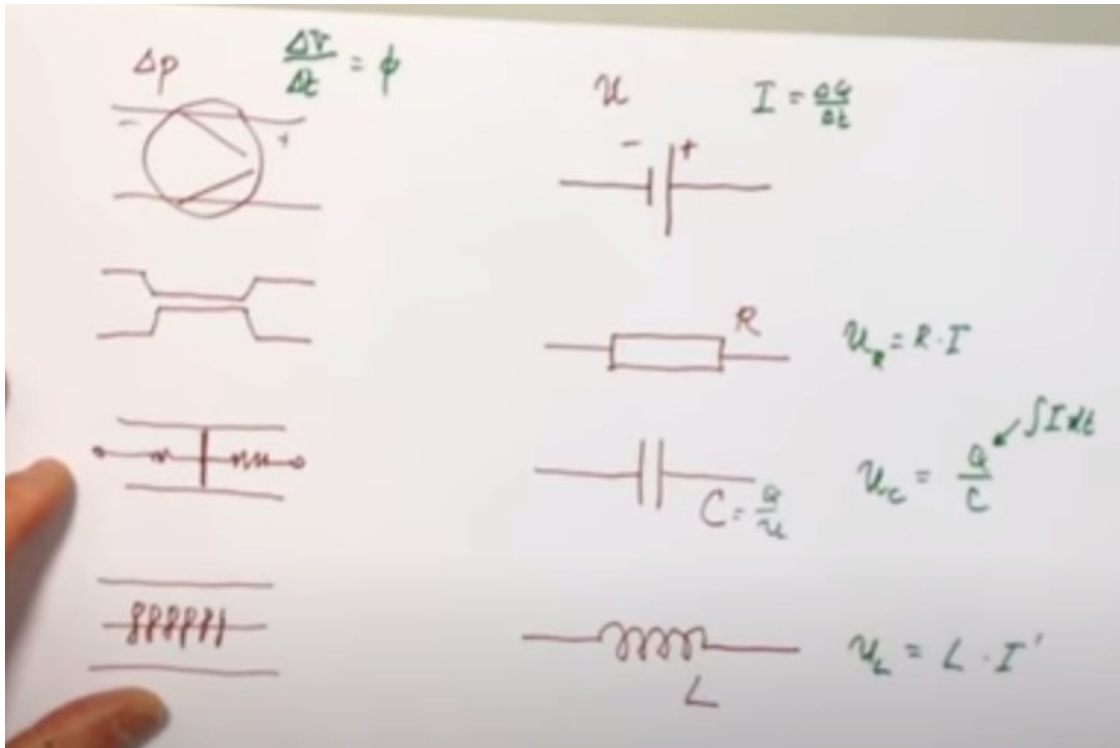 Δp
ΔV/Δt = ϕ
u
I = ΔQ/Δt
- +
- +
R
u_R = R · I
∫I dt
u_C = Q/C
C = Q/u
L
u_L = L · I'